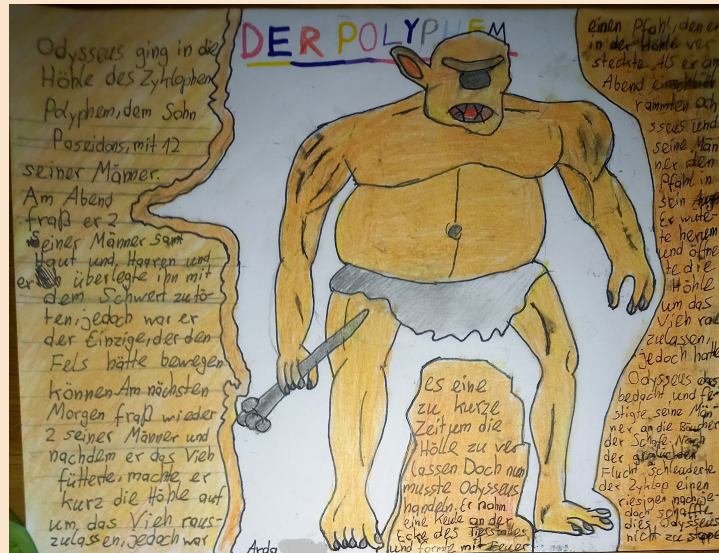 DER POLYPHEM
Odysseus ging in die
Höhle des Zyklophen
Polyphem, dem Sohn
Poseidons, mit 12
seiner Männer.
Am Abend
fraß er 2
seiner Männer samt
Haut und, Haaren und
er überlegte ihn mit
dem Schwert zu tö-
ten, jedoch war er
der Einzige, der den
Fels hätte bewegen
können. Am nächsten
Morgen fraß wieder
2 seiner Männer und
nachdem er das Vieh
fütterte, machte er
kurz die Höhle auf
um, das Vieh raus-
zulassen, jedoch war
es eine
zu kurze
Zeit um die
Hölle zu ver
lassen. Doch nun
musste Odysseus
handeln. Er nahm
eine Keule an der
Ecke des
und formte mit Feuer
einen Pfahl, den er
in der Höhle ver
steckte. Als er am
Abend
rammten Ody
sseus und
seine Män
ner den
Pfahl in
sein
Er wüte-
te herum
und öffne
te die
Höhle
um das
Vieh raus
zulassen,
jedoch hatte
Odysseus das
bedacht und fe
stigte seine Män
ner an die Bäucher
der Schafe. Nach
der
Flucht schleuderte
der Zyklop einen
riesigen nach, je-
doch schaffte
dies Odysseus
nicht zu stoppen
Arda